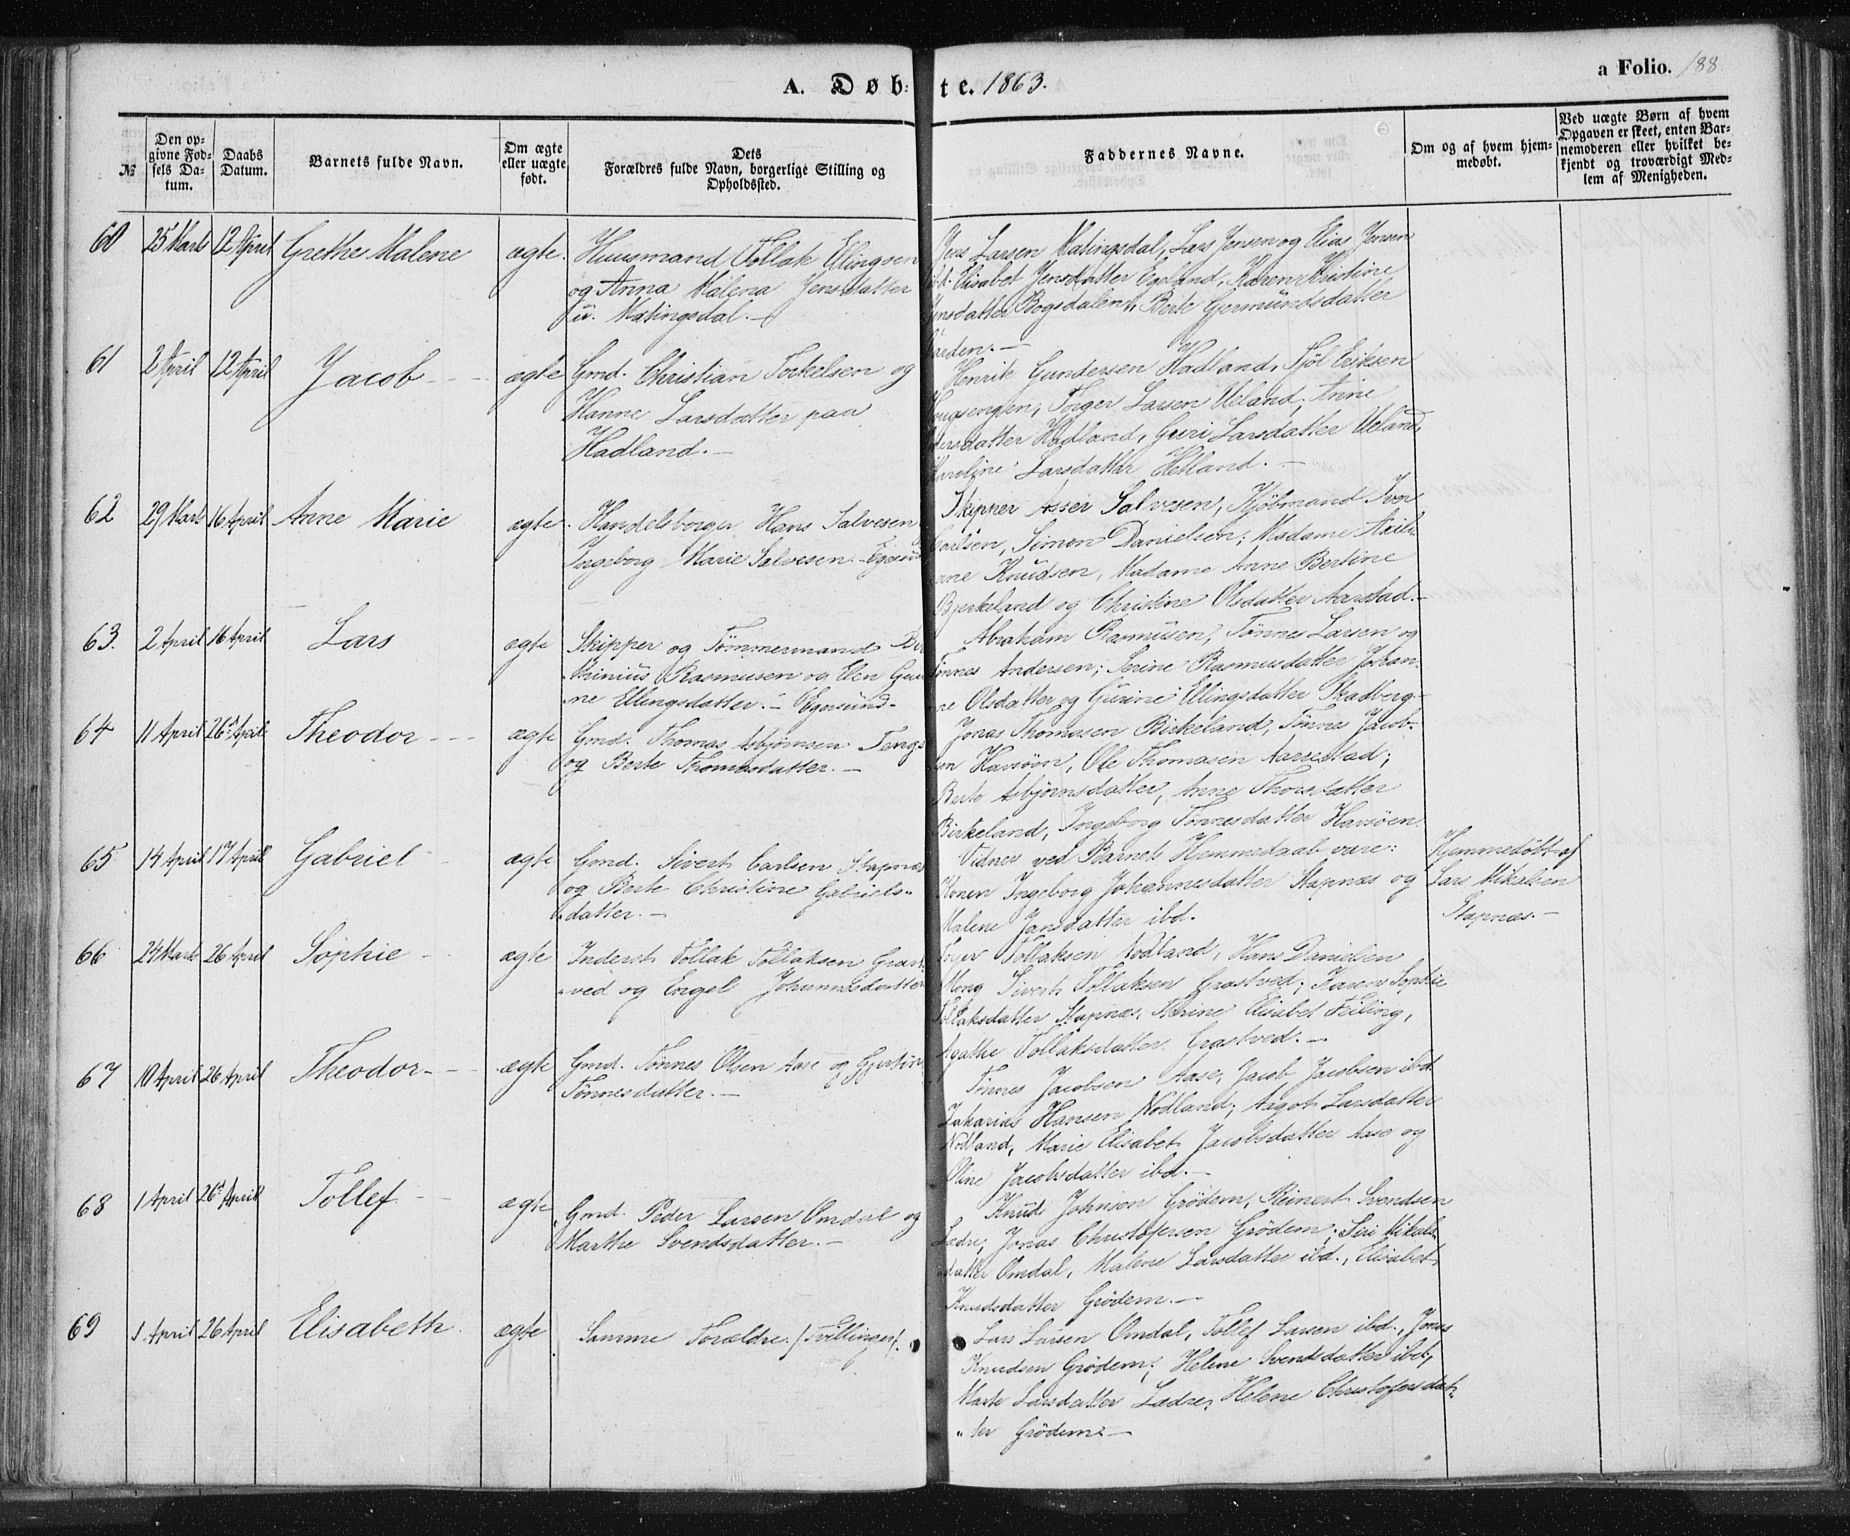 A. Døb- te. 1863.
a Folio. 188.
№
Den op-
givne Fød-
sels Da-
tum.
Daabs
Datum.
Barnets fulde Navn.
Om ægte
eller uægte
født.
Dets
Forældres fulde Navn, borgerlige Stilling og
Opholdssted.
Faddernes Navne.
Om og af hvem hjem-
medøbt.
Ved uægte Børn af hvem
Opgaven er skeet, enten Bar-
nemoderen eller hvilket be-
kjendt og troværdigt Med-
lem af Menigheden.
60 25 Marts 12 April Grethe Malene ægte.
Huusmand Tollak Ellingsen
og Anna Malena Jensdatter
Matingsdal.—
Jens Larsen Matingsdal, Lars Jensen og Elias Jensen
ibd. Elisabet Jensdatter Egeland, Karen Kristine
Jensdatter Bogsdalen, Berte Gjermundsdatter
61 2 April 12 April Jacob ægte
Gmd. Christian Torkelsen og
Hanne Larsdatter paa
Hadland.—
Henrik Gundersen Hadland, Sjöl Eriksen
Haugsengen, Torger Larsen Ueland, Anne
datter Hadland, Guri Larsdatter Ueland,
Karoline Larsdatter Hetland.—
62 29 Marts 16 April Anne Marie ægte.
Handelsborger Hans Salvesen
Ingeborg Marie Salvesen. Egersund
Skipper Asser Salvesen, Kjöbmand Iver
Carlsen, Simon Danielsen; Madame
Knudsen, Madame Anne Bertine
Bjerkeland og Christine Olsdatter Aarstad.—
63. 2 April 16 April Lars ægte
Skipper og Tömmermand
Rasmusen og Elen Gu
ne Ellingsdatter.— Egersund.
Abraham Rasmusen, Tönnes Larsen og
Tönnes Andersen; Serine Rasmusdatter Johan-
ne Olsdatter og Gurine Ellingsdatter Skadberg
64 11 April 26 April Theodor ægte
Gmd. Thomas Asbjörnsen Tengs
og Berte Thomasdatter.—
Jonas Thomasen Birkeland, Tönnes Jacob-
sen Havsöen, Ole Thomasen Aarrestad;
Berte Asbjörnsdatter, Anne Thorsdatter
Birkeland, Ingeborg Tönnesdatter Havsöen.
65 14 April 17 April Gabriel ægte
Gmd. Sivert Carlsen Stapnæs
og Berte Christine Gabriels-
datter.—
Vidner ved Barnets Hjemmedaab vare:
Konen Ingeborg Johannesdatter Stapnæs og
Malene Jansdatter ibd.
Hjemmedöbt af
Lars Mikalsen
Stapnæs.—
66 24 Marts 26 April Sophie ægte
Inderst Tollak Tollaksen Grast-
ved og Engel Johannesdatter
Torger Tollaksen Nodland, Hans Danielsen
Mong Sivert Tollaksen Grastved; Karen Sophie
Tollaksdatter Stapnæs, Serine Elisabet Feiling,
Agathe Tollaksdatter Grastved.—
67 10 April 26 April Theodor ægte
Gmd. Tönnes Olsen Aase og Gjertine
Tönnesdatter.—
Tönnes Jacobsen Aase, Jacob Jacobsen ibd
Zakarias Hansen Nodland; Aagot Larsdatter
Nodland, Marie Elisabet Jacobsdatter Aase og
Oline Jacobsdatter ibd.—
68 1 April 26 April Tollef ægte
Gmd. Peder Larsen Omdal og
Marthe Svendsdatter.—
Knud Johnson Grödem, Reinert Svendsen
Ladre, Jonas Christofersen Grödem; Siri Mikals-
datter Omdal, Malene Larsdatter ibd., Elisabet
Knudsdatter Grödem.—
69 1 April 26 April Elisabeth ægte
Samme Forældre. (Tvillinger).
Lars Larsen Omdal, Tollef Larsen ibd., Jonas
Knudsen Grödem; Helene Svendsdatter ibd.,
Marte Larsdatter Ladre, Helene Christofersdat-
ter Grödem.—